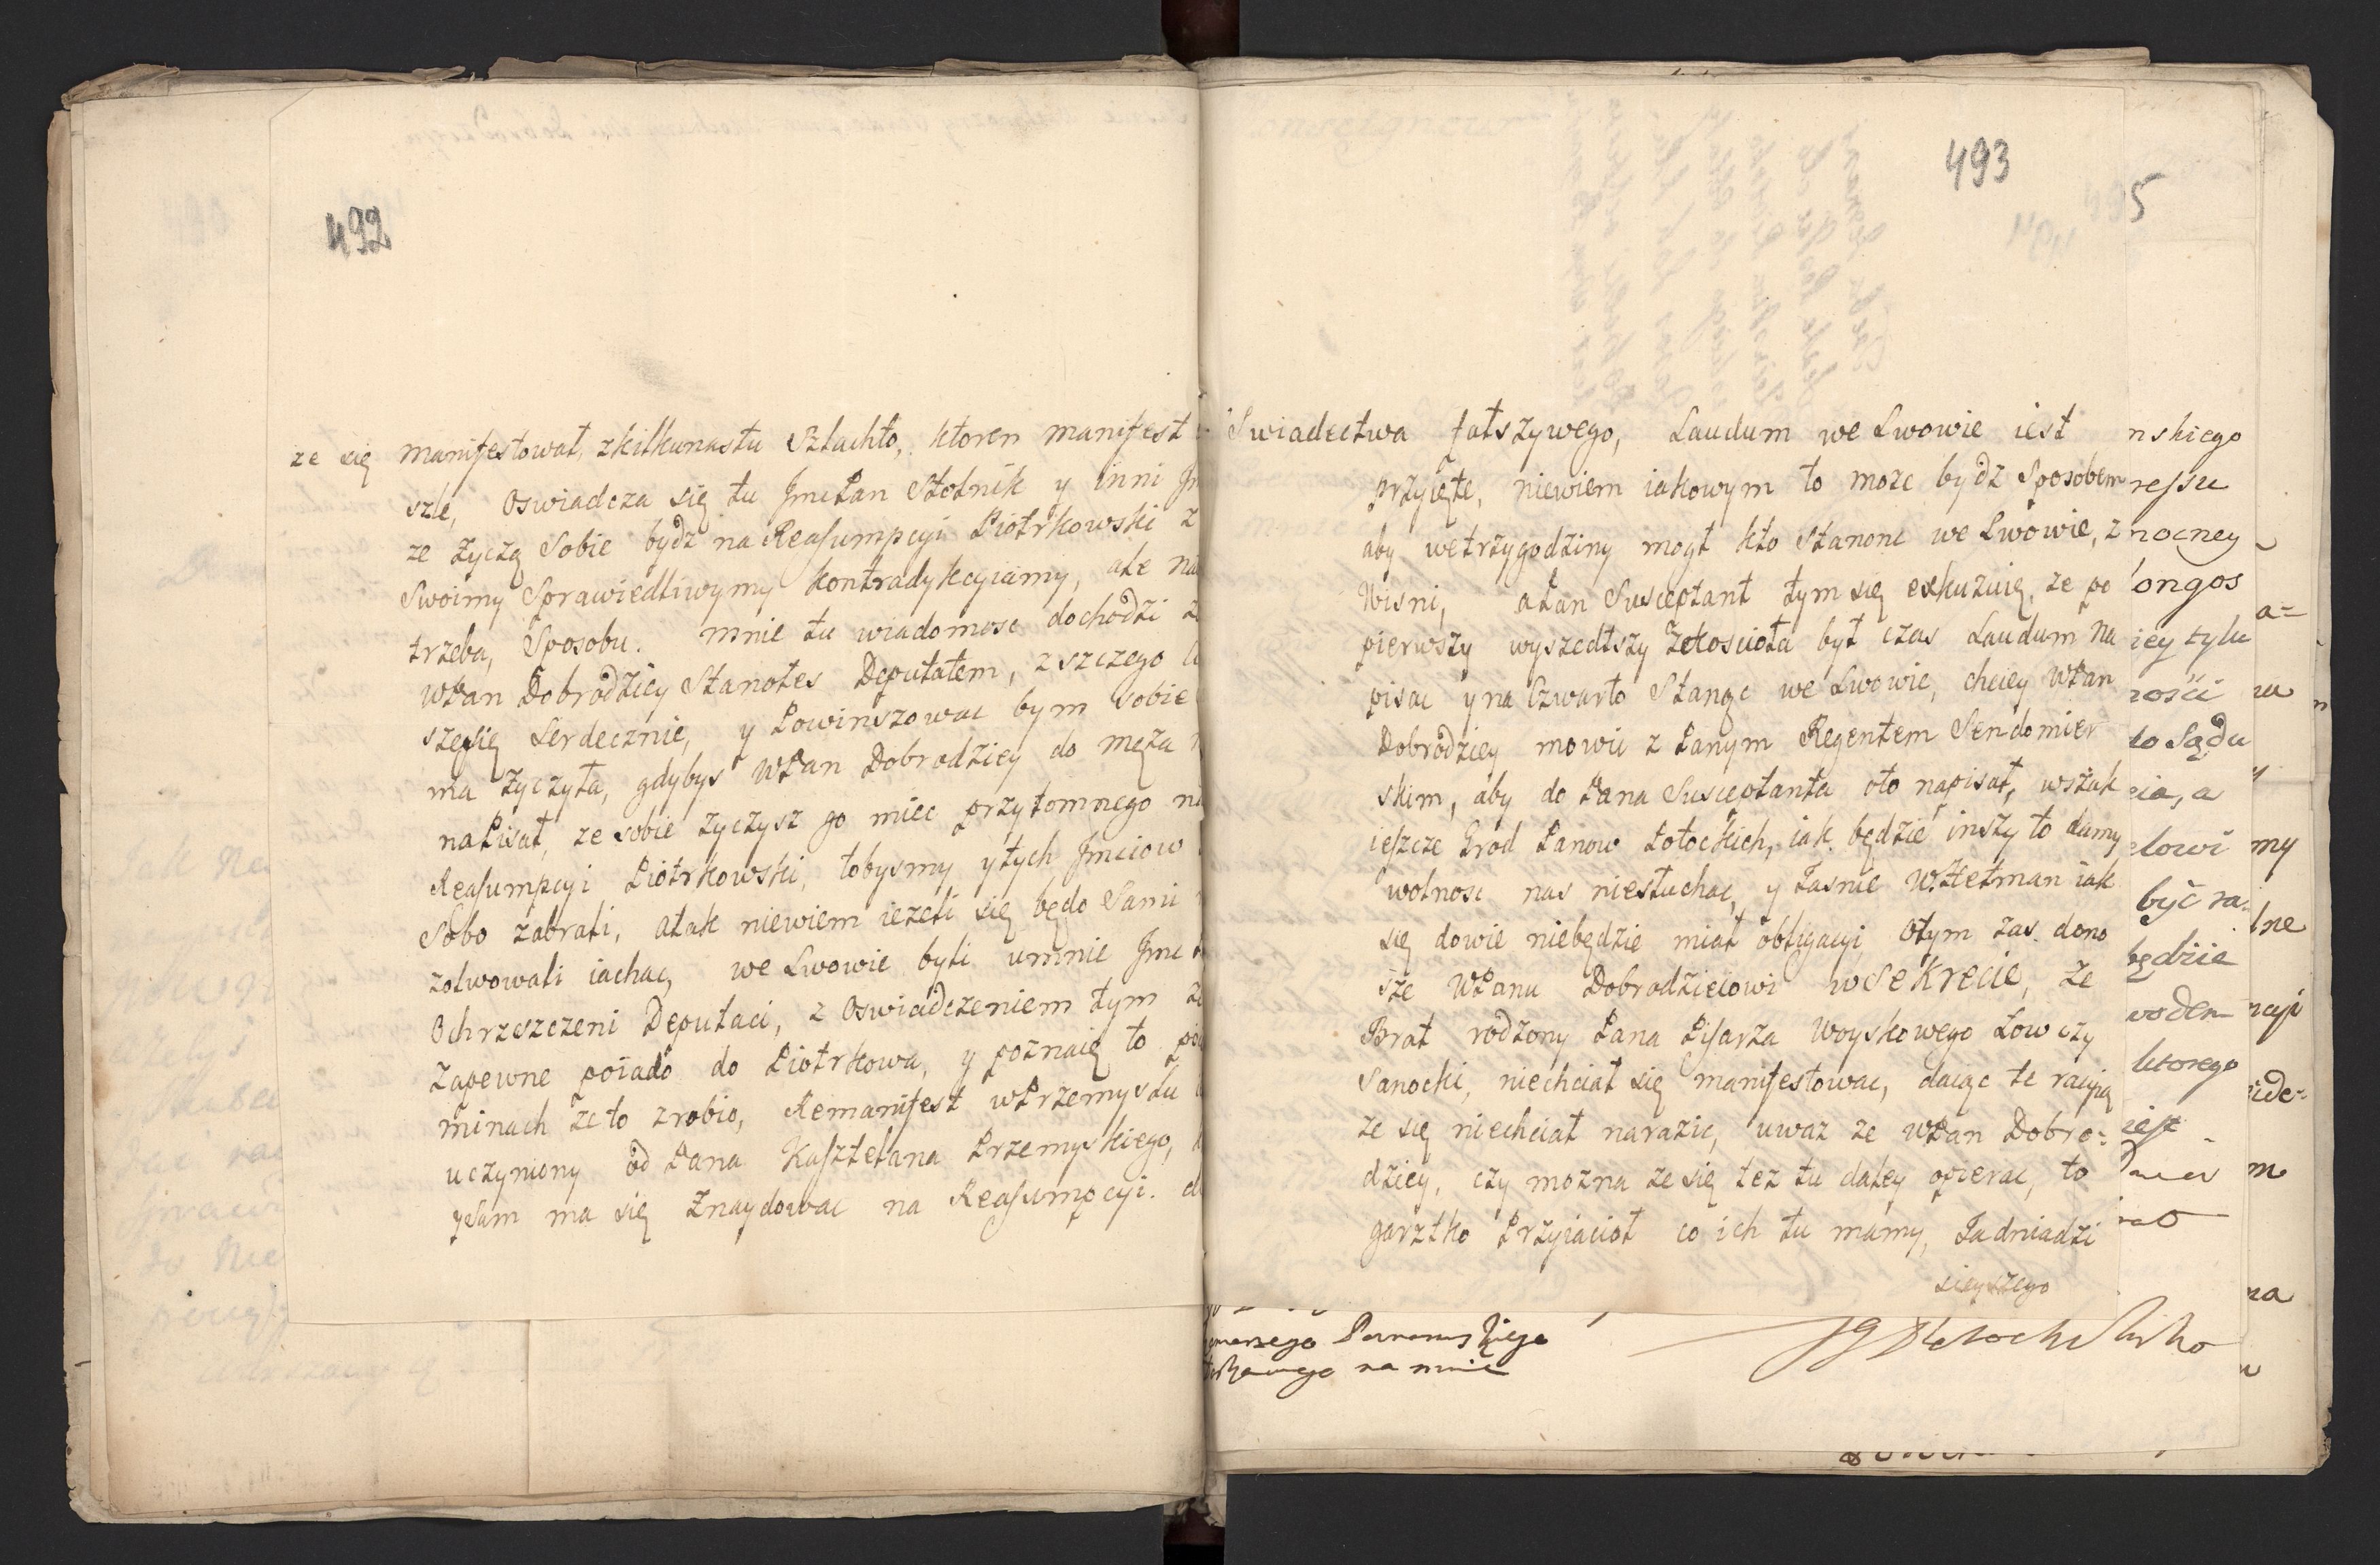 492
ze się manifestował, zkilkunastu Szlachto, ktoren manifest
szle, Oswiadcza się tu JmcPan Stolnik y inni
ze życzą Sobie bydz na Reasumpcyi Piotrkowski z
Swoimy Sprawiedliwymy kontradykcyiamy, ale na
trzeba, Sposobu. mnie tu wiadomosc dochodzi
WPan Dobrodziey Stanołes Deputatem, zszczego
szęsię Serdecznie, y Powinszowac bym sobie
ma życzyła, gdybys WPan Dobrodziey do męża
naPisał, ze sobie życzysz go miec przytomnego
Reasumpcyi Piotrkowski, tobysmy ytych Jmciow
Sobo zabrali, atak niewiem iezeli się będo Sami
zolwowali iachac, we Lwowie byli umnie Jmc
Ochrzeszczeni Deputaci, z Oswiadczeniem tym
Zapewne poiado do Piotrkowa, y poznaię to
minach ze to zrobio, Remanifest wPrzemyslu
uczyniony od Pana Kasztelana Przemyskiego,
ySam ma się Znaydowac na Reasumpcyi.
493
Swiadectwa fałszywego, Laudum we Lwowie iest
przyięte, niewiem iakowym to moze bydz Sposobem
aby wetrzygodziny mogł kto Stanonc we Lwowie, z
Wisni, aPan Susceptant tym się exkuzuię, ze po
pierwszy wyszedłszy zKoscioła był czas Laudum na
pisac yna Czwarto Stanąc we Lwowie, chciey WPan
Dobrodziey mowic z Panym Regentem Sendomier
skim, aby do Pana Susceptanta oto napisał, wszak
ieszcze Grod Panow Potockich, iak będzie inszy to damy
wolnosc nas niesłuchac, y Jasnie W.Hetman iak
się dowie niebędzie miał obligacyi, Otym zas dono
sze WPanu Dobrodzieiowi wSekrecie, ze
Brat rodzony Pana Pisarza Woyskowego Łowczy
Sanocki, niechciał się manifestowac, daiąc te racyią
ze się niechciał narazic, uwaz ze WPan Dobro=
dziey, czy mozna ze się tez tu daley opierac, to
garztko Przyiacioł co ich tu mamy, Ja dniadzi
sieyszego
5
nskiego
ressu
nocney
longos
iey tylu
nosci
do Sądu
cia, a
elowi
być ra=
będzie
wodem
ktorego
iest
a=
na
my
lne
ncyi
ide=
m
na
na mnie